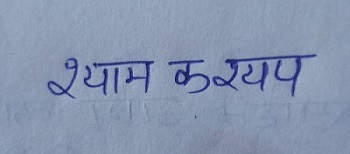 श्याम कश्यप